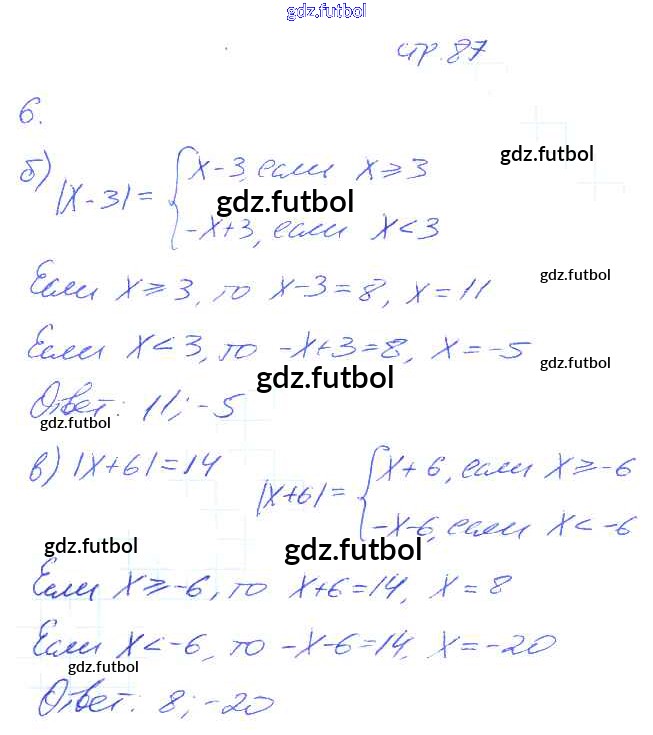 gdz.futbol
стр.87
6.
gdz.futbol
б) |x-3| = { x-3, если x ⩾ 3
gdz.futbol
-x+3, если x < 3
gdz.futbol
Если x ⩾ 3, то x-3=8, x=11
Если x < 3, то -x+3=8, x=-5
gdz.futbol
gdz.futbol
Ответ: 11; -5
gdz.futbol
в) |x+6|=14 |x+6|= { x+6, если x ⩾ -6
-x-6, если x < -6
gdz.futbol
gdz.futbol
Если x ⩾ -6, то x+6=14, x=8
Если x < -6, то -x-6=14, x=-20
gdz.futbol
Ответ: 8; -20